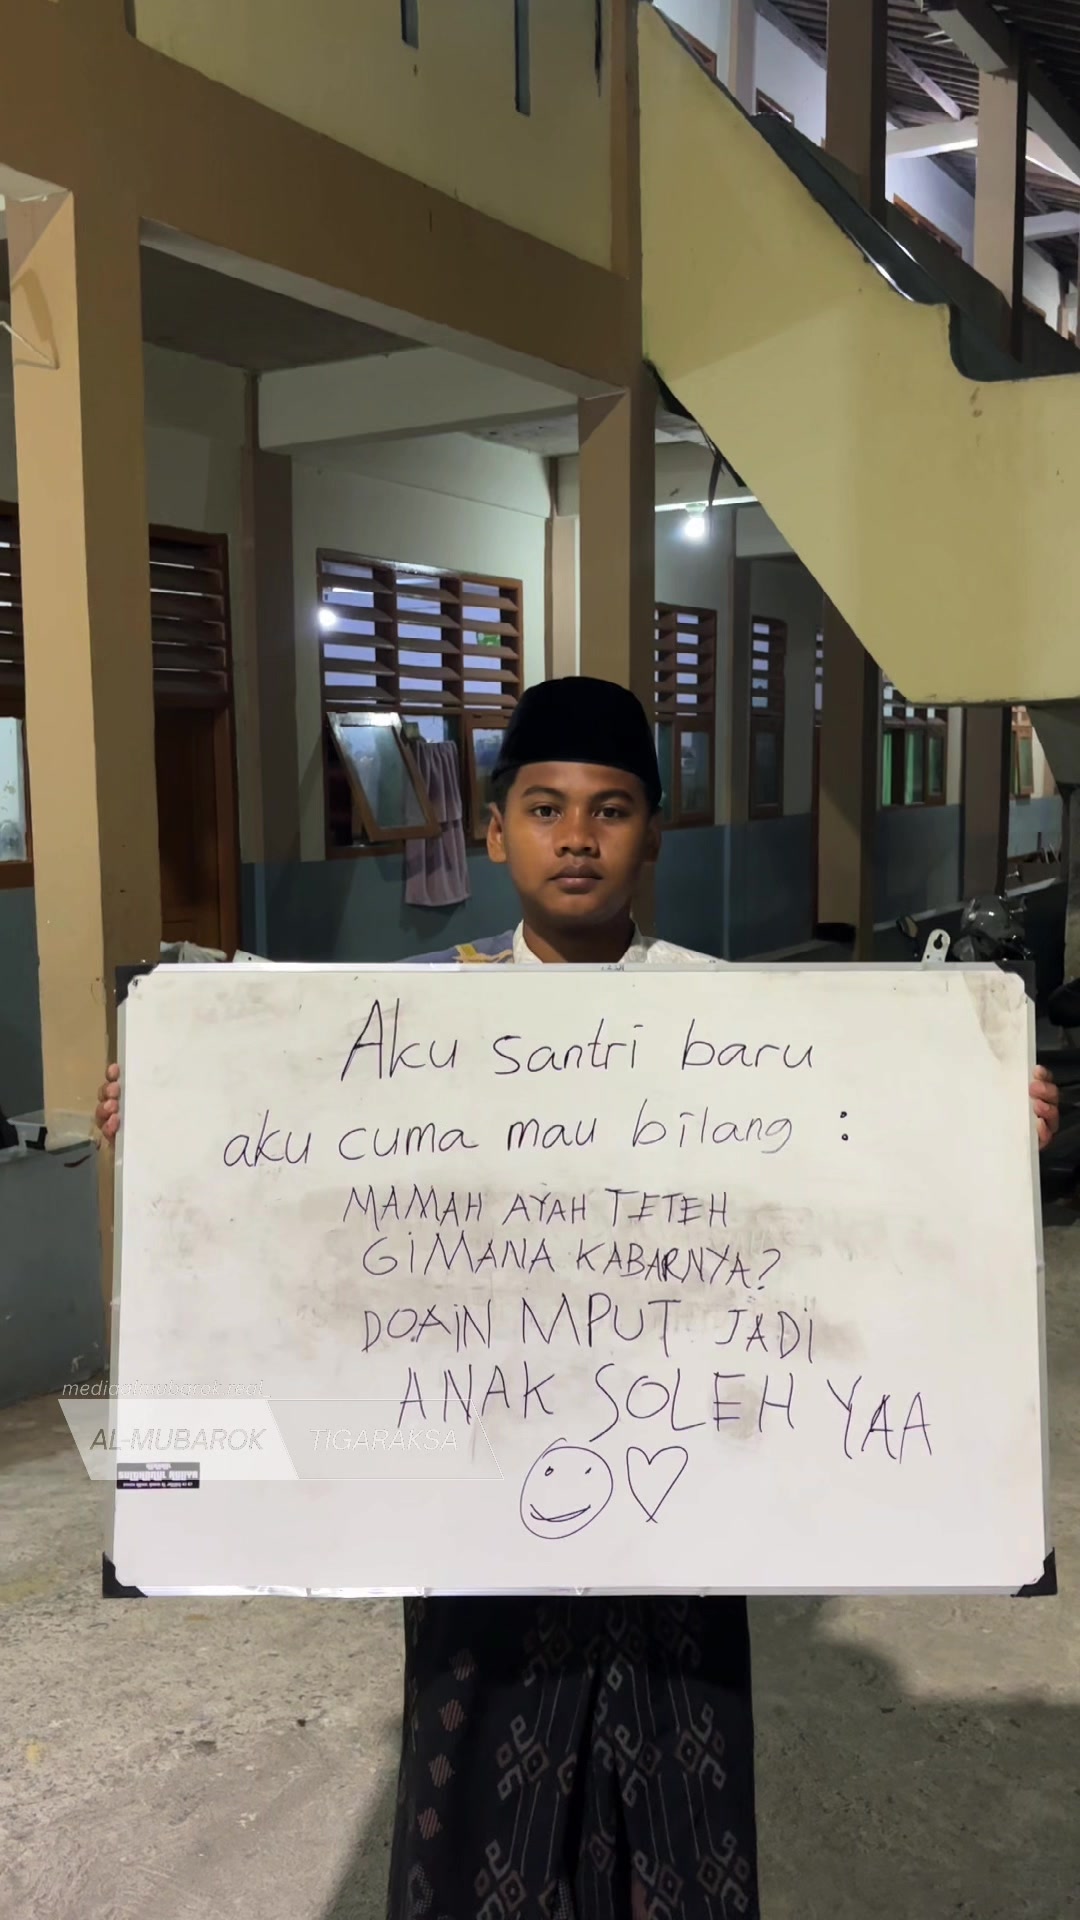 Aku santri baru
aku cuma mau bilang :
MAMAH AYAH TETEH
GiMANA KABARNYA?
DOAiN MPUT JADi
ANAK SOLEH YAA
AL-MUBAROK TIGARAKSA